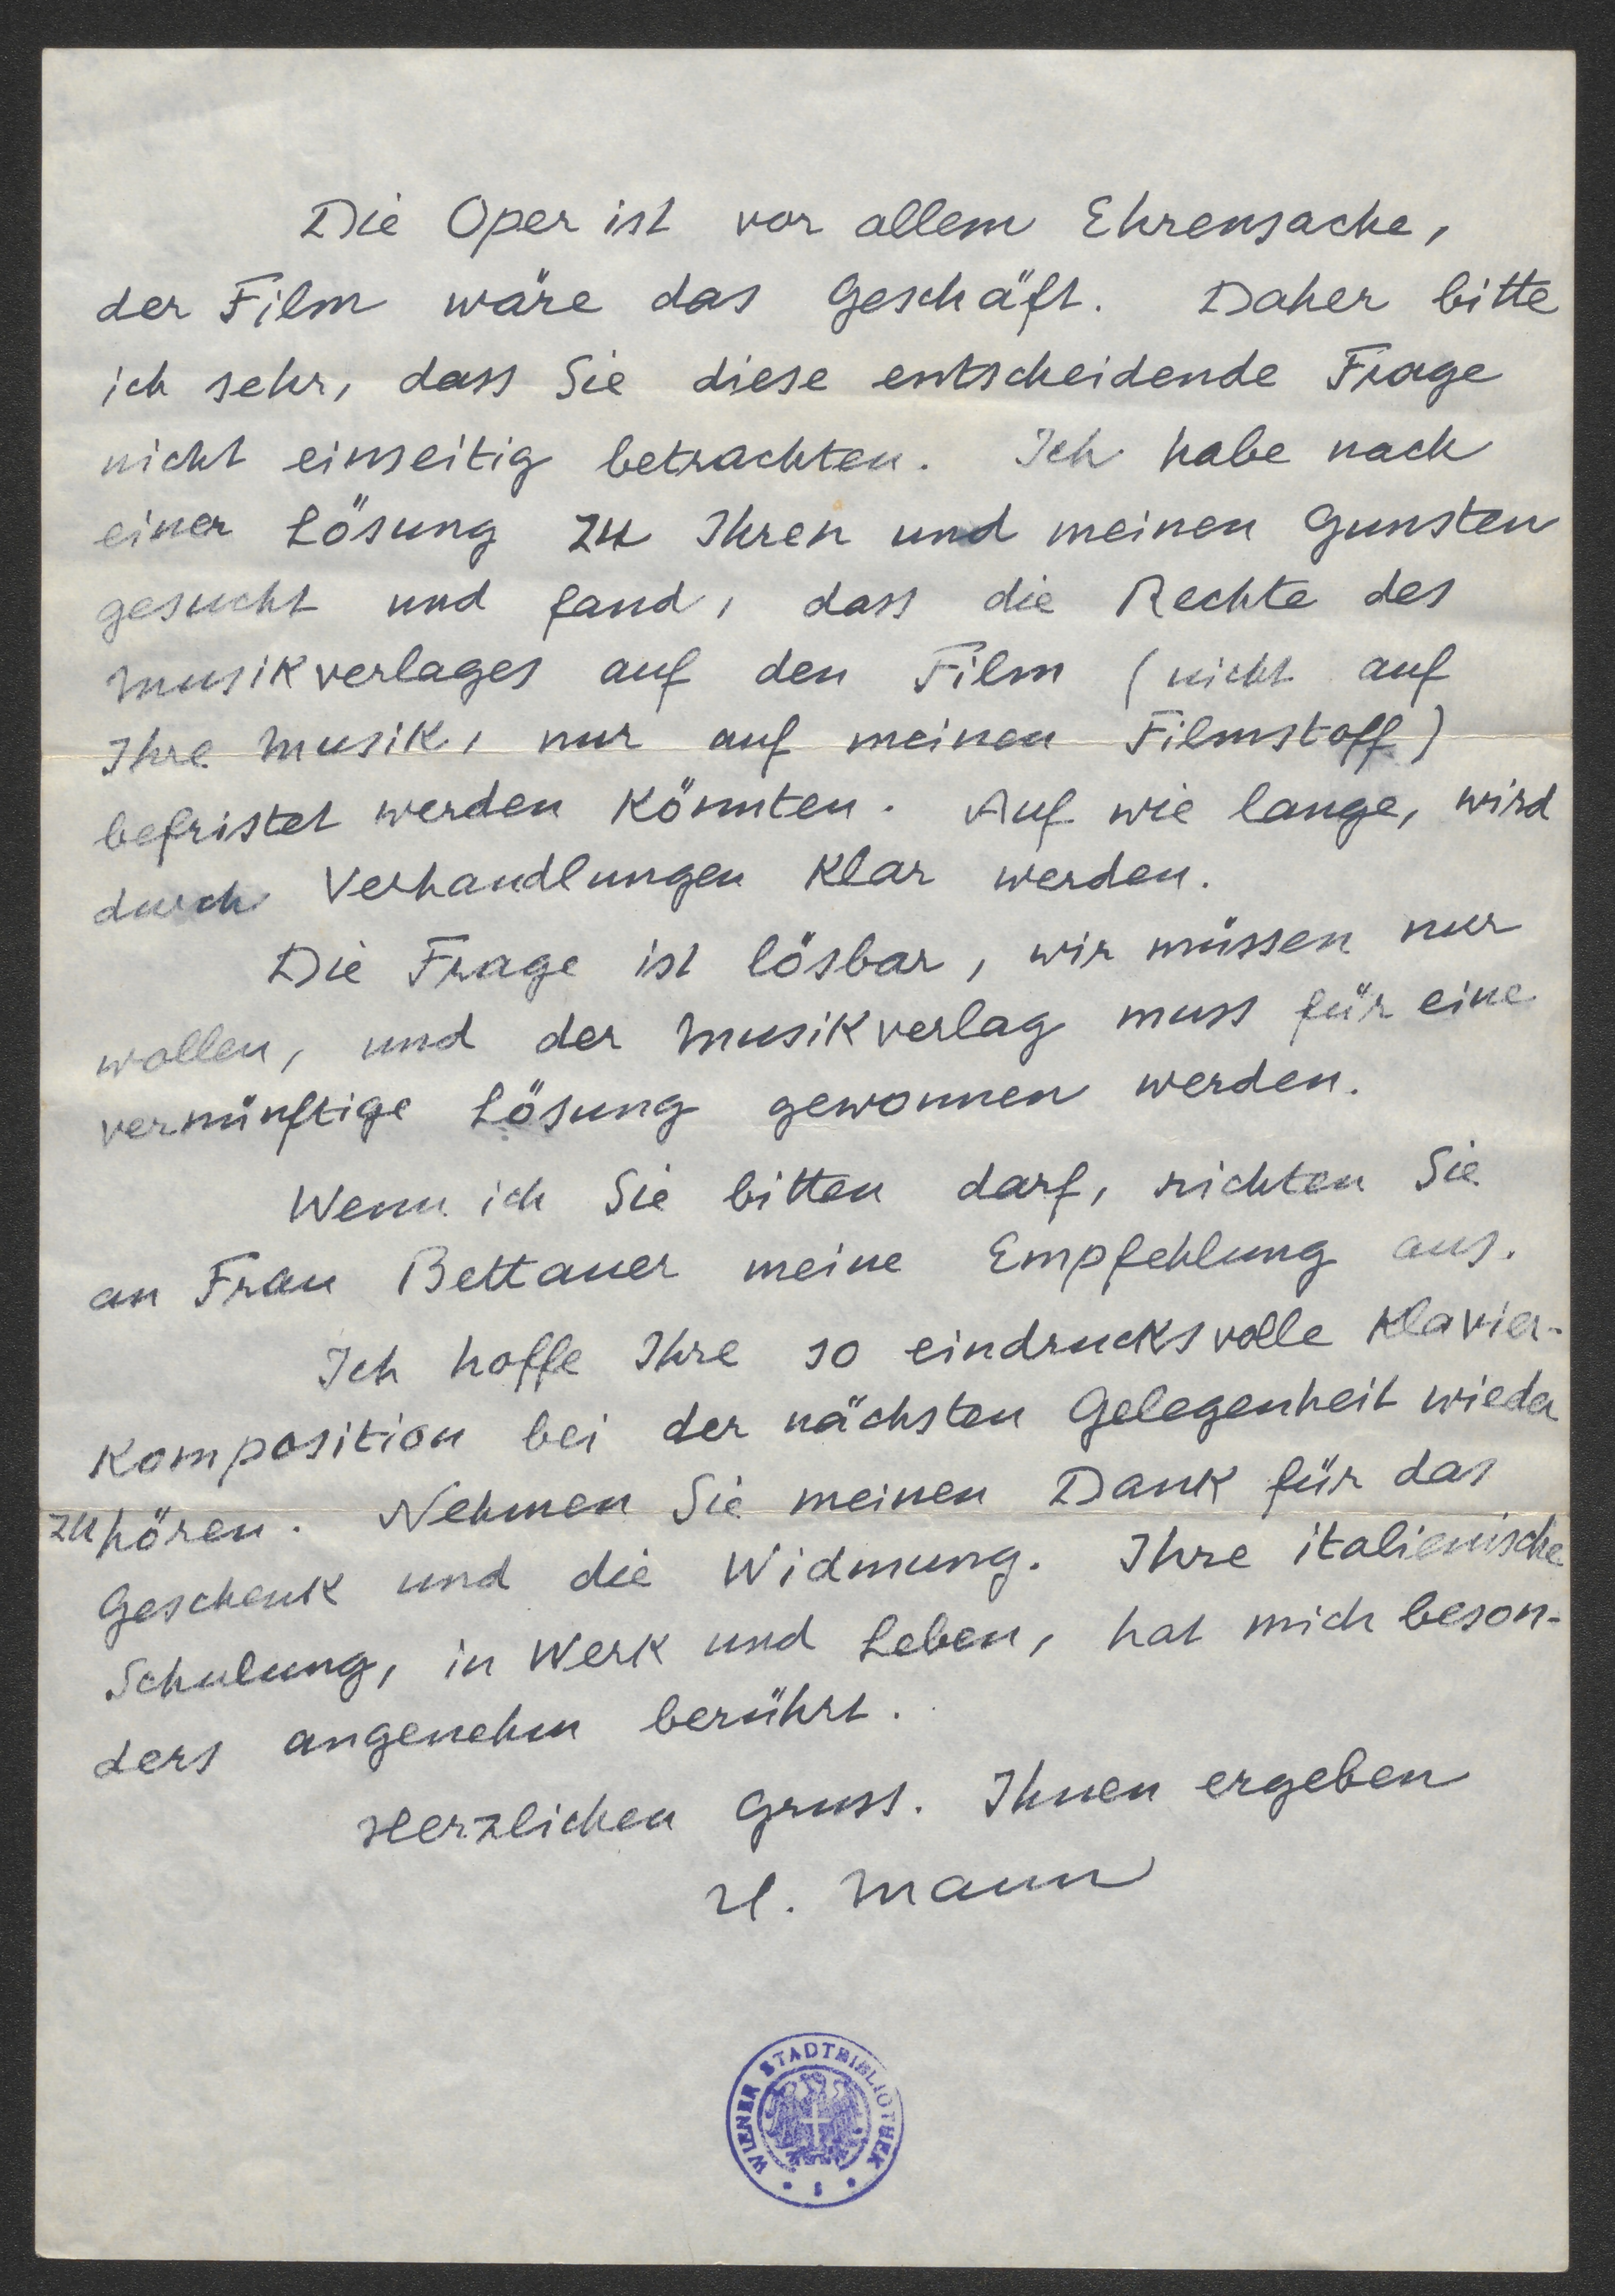 Die Oper ist vor allem Ehrensache,
der Film wäre das Geschäft. Daher bitte
ich sehr, dass Sie diese entscheidende Frage
nicht einseitig betrachten. Ich habe nach
einer Lösung zu Ihren und meinen Gunsten
gesucht und fand, dass die Rechte des
Musikverlages auf den Film (nicht auf
Ihre Musik, nur auf meinen Filmstoff)
befristet werden könnten. Auf wie lange, wird
durch Verhandlungen klar werden.
Die Frage ist lösbar, wir müssen nur
wollen, und der Musikverlag muss für eine
vernünftige Lösung gewonnen werden.
Wenn ich Sie bitten darf, richten Sie
an Frau Bettauer meine Empfehlung aus.
Ich hoffe Ihre so eindrucksvolle Klavier-
komposition bei der nächsten Gelegenheit wieder
zu hören. Nehmen Sie meinen Dank für das
Geschenk und die Widmung. Ihre italienische
Schulung, in Werk und Leben, hat mich beson-
ders angenehm berührt.
Herzlichen Gruss. Ihnen ergeben
H. Mann
WIENER STADTBIBLIOTHEK
1